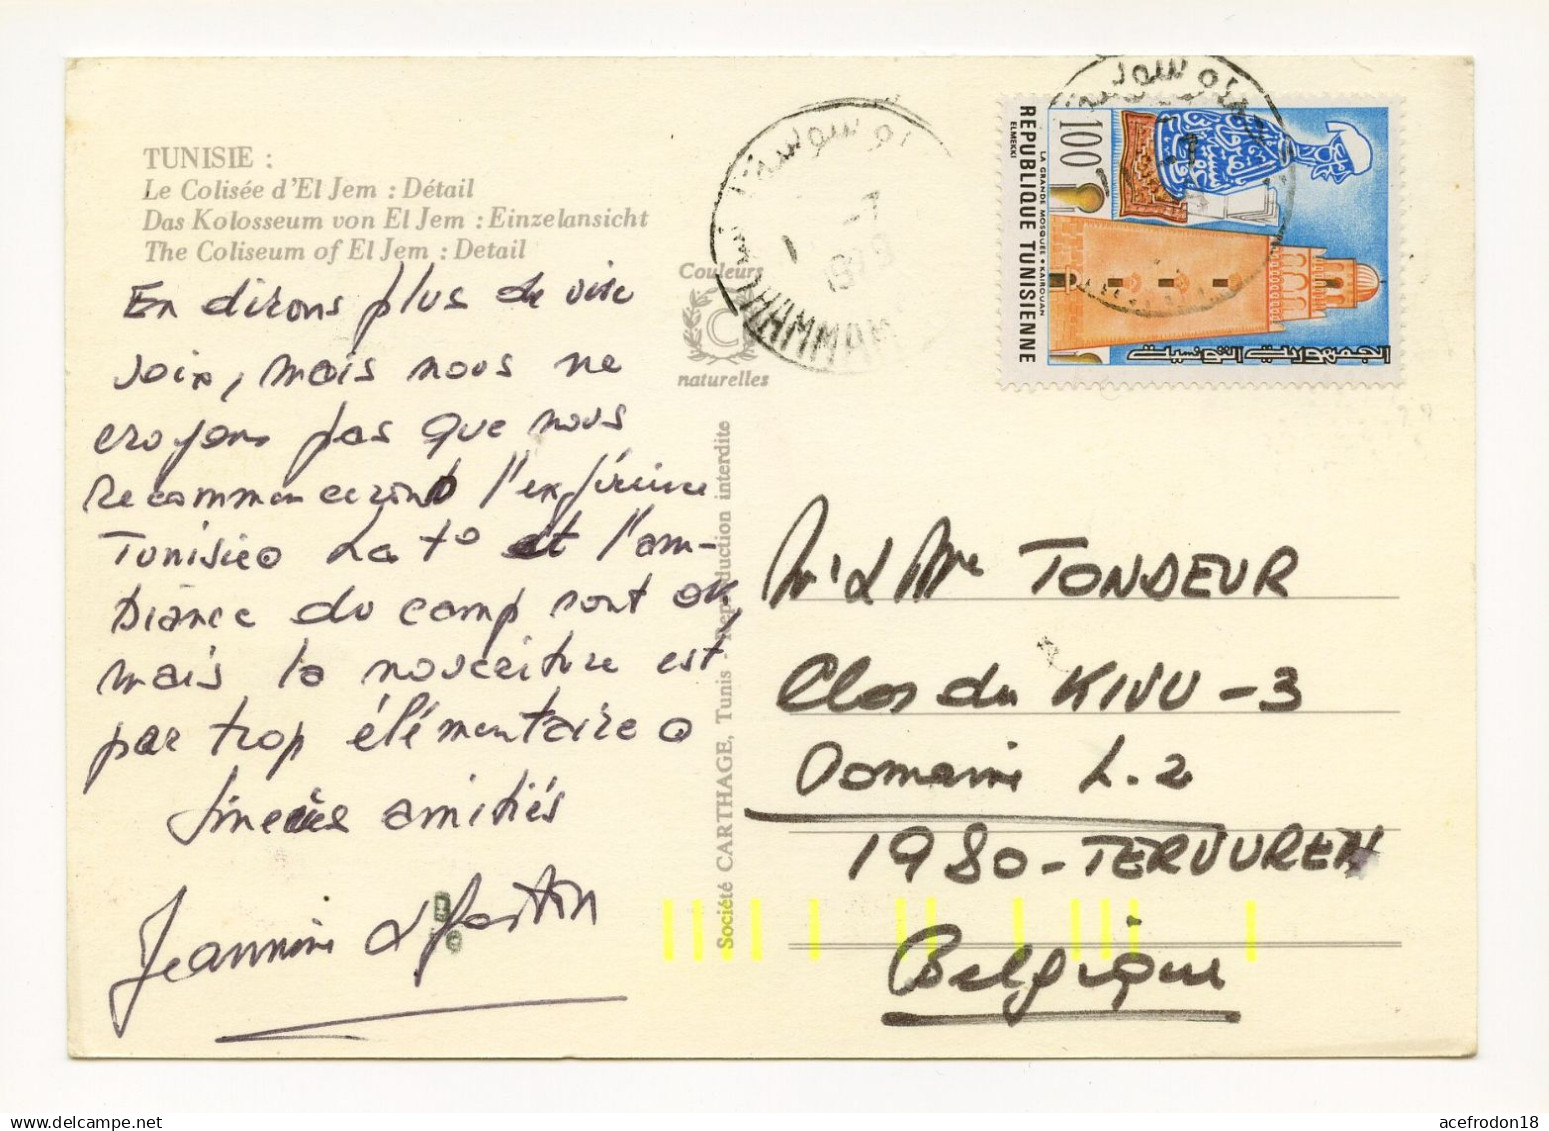 TUNISIE :
Le Colisée d'El Jem : Détail
Das Kolosseum von El Jem : Einzelansicht
The Coliseum of El Jem : Detail
En dirons plus de vive
voix, mais nous ne
croyons pas que nous
recommencerons l'expérience
Tunisie. La t° et l'am-
biance du camp sont ok,
mais la nourriture est,
par trop élémentaire.
Sincères amitiés
Jeannine & Gaston
Couleurs
C
naturelles
Société CARTHAGE, Tunis - Reproduction interdite
1979
HAMMAM
100
LA GRANDE MOSQUÉE • KAIROUAN
REPUBLIQUE TUNISIENNE
ELMEKKI
الجمهورية التونسية
Mr & Mme TONDEUR
Clos du KIVU - 3
Domaine L.2
1980 - TERVUREN
Belgique
acefrodon18